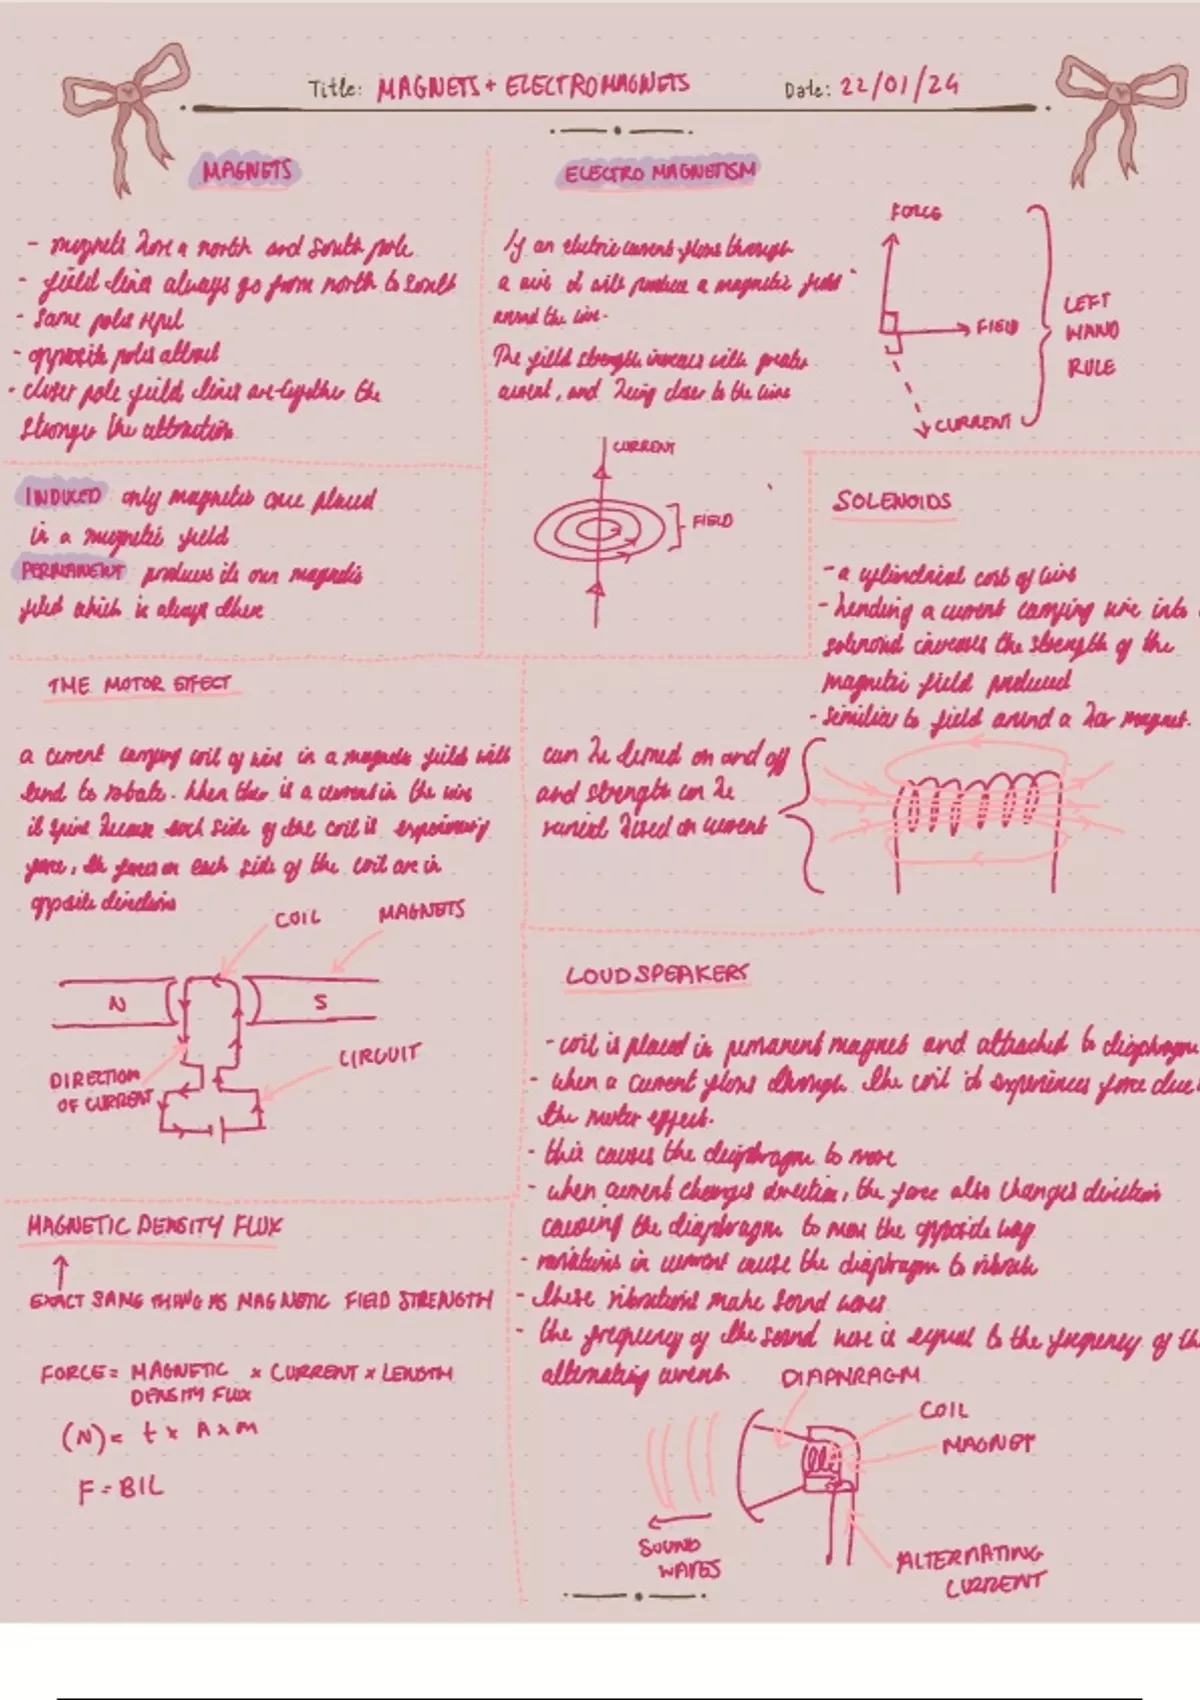 Title: MAGNETS + ELECTROMAGNETS Date: 22/01/24
MAGNETS
- magnets have a north and south pole
- field lines always go from north to south
- same poles repel
- opposite poles attract
- closer pole field lines are together the
stronger the attraction
INDUCED only magnetic once placed
in a magnetic field
PERMANENT produces its own magnetic
field which is always there
ELECTRO MAGNETISM
If an electric current flows through
a wire it will produce a magnetic field
around the wire.
The field strength increases with greater
current, and being closer to the wire
CURRENT
FIELD
FORCE
FIELD
CURRENT
LEFT
HAND
RULE
SOLENOIDS
- a cylindrical coil of wire
- bending a current carrying wire into
solenoid increases the strength of the
magnetic field produced
- similar to field around a bar magnet.
can be turned on and off
and strength can be
varied based on current
THE MOTOR EFFECT
a current carrying coil of wire in a magnetic field will
tend to rotate. When there is a current in the wire
it spins because each side of the coil is experiencing
force, the forces on each side of the coil are in
opposite directions
COIL
MAGNETS
N
S
DIRECTION
OF CURRENT
CIRCUIT
MAGNETIC DENSITY FLUX
EXACT SAME THING AS MAGNETIC FIELD STRENGTH
FORCE = MAGNETIC × CURRENT × LENGTH
DENSITY FLUX
(N) = t × A × m
F = BIL
LOUDSPEAKERS
- coil is placed in permanent magnet and attached to diaphragm
- when a current flows through the coil it experiences force due t
the motor effect.
- this causes the diaphragm to move
- when current changes direction, the force also changes direction
causing the diaphragm to move the opposite way
- variations in current cause the diaphragm to vibrate
- these vibrations make sound waves
- the frequency of the sound wave is equal to the frequency of th
alternating current
DIAPHRAGM
COIL
MAGNET
SOUND
WAVES
ALTERNATING
CURRENT